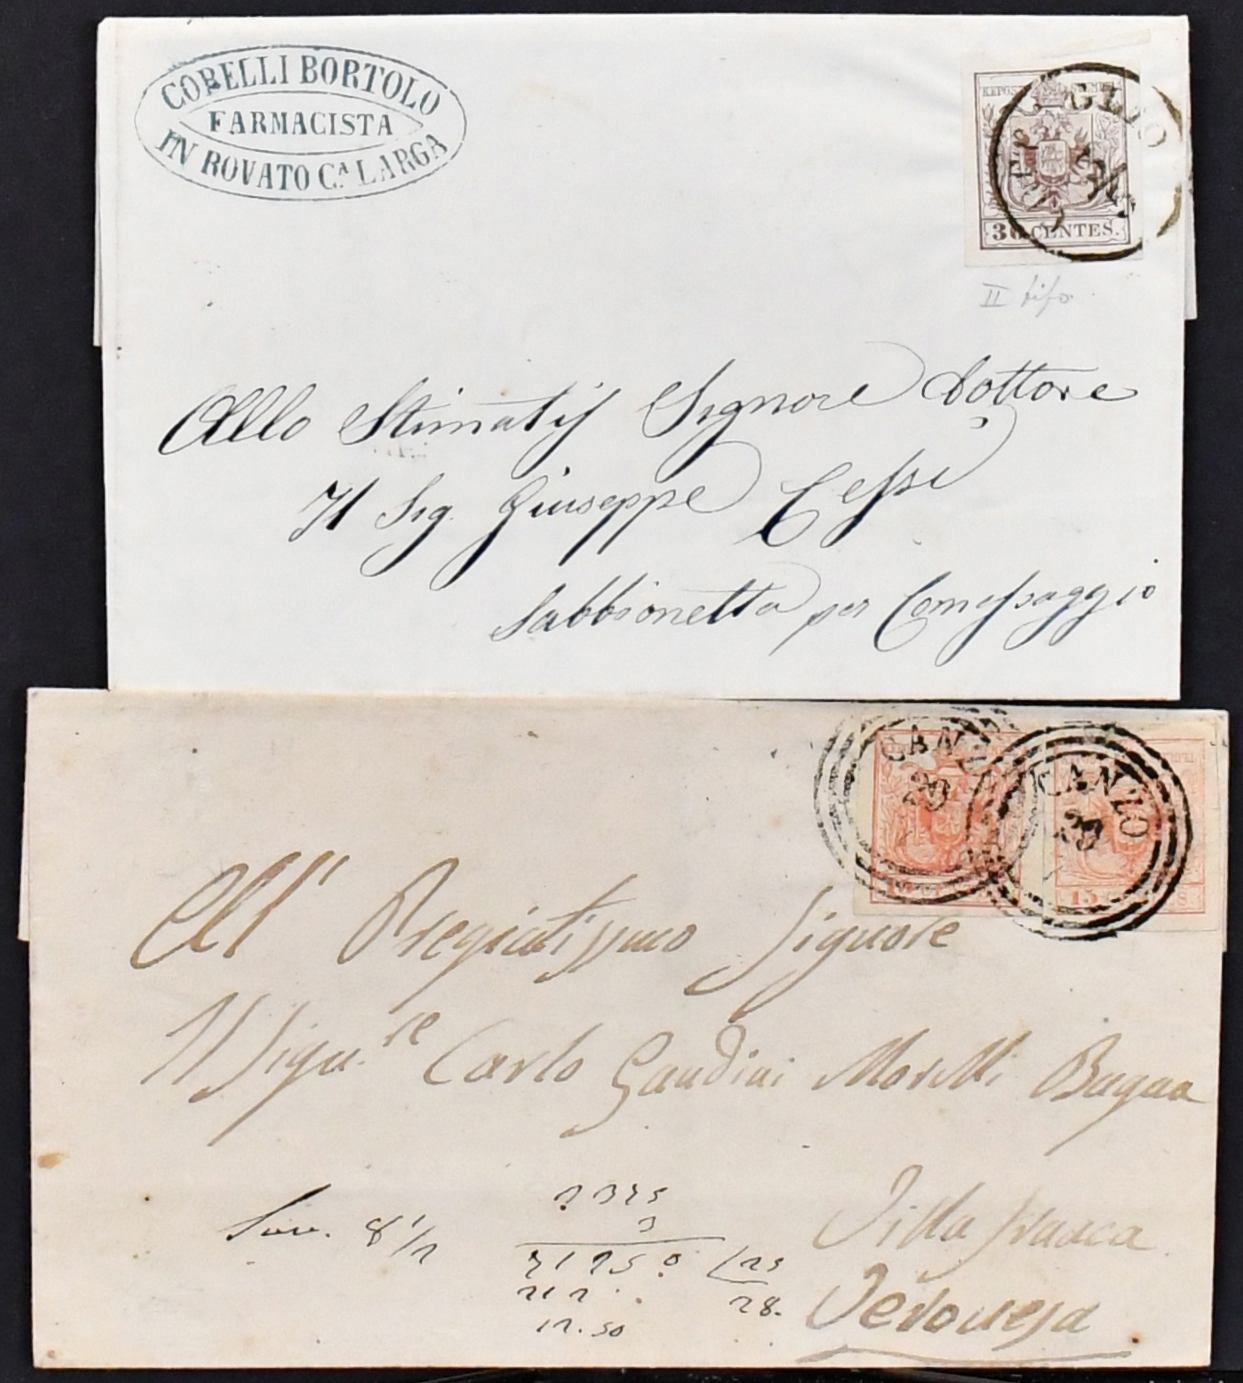 CORELLI BORTOLO
FARMACISTA
IN ROVATO C.A LARGA
30 CENTES.
II tipo
Allo Stimatis Signore Dottore
Il Sig. Giuseppe Cessi
Sabbionetta per Comessaggio
CANZO
29
CANZO
29
15
15
All' Pregiatissimo Signore
Il Sign.re Carlo Gandini Morelli Bugna
8 1/2
2325
3
28.
12.50
Villafranca
Veronesa